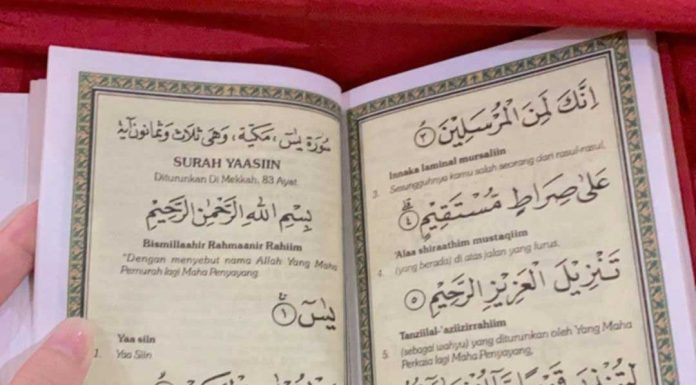 سُورَةُ يٰسٓ، مَكِّيَّة، وَهِيَ ثَلَاثٌ وَثَمَانُونَ آيَة
SURAH YAASIIN
Diturunkan Di Mekkah, 83 Ayat
بِسْمِ اللهِ الرَّحْمٰنِ الرَّحِيْمِ
Bismillaahir Rahmaanir Rahiim
"Dengan menyebut nama Allah Yang Maha
Pemurah lagi Maha Penyayang
يٰسٓ ۚ ﴿١﴾
Yaa siin
1. Yaa Siin
اِنَّكَ لَمِنَ الْمُرْسَلِيْنَ ﴿٣﴾
Innaka laminal mursaliin
3. Sesungguhnya kamu salah seorang dari rasul-rasul,
عَلٰى صِرَاطٍ مُّسْتَقِيْمٍ ﴿٤﴾
'Alaa shiraathim mustaqiim
4. (yang berada) di atas jalan yang lurus,
تَنْزِيْلَ الْعَزِيْزِ الرَّحِيْمِ ﴿٥﴾
Tanziilal-'aziizirrahiim
5. (sebagai wahyu) yang diturunkan oleh Yang Maha
Perkasa lagi Maha Penyayang,